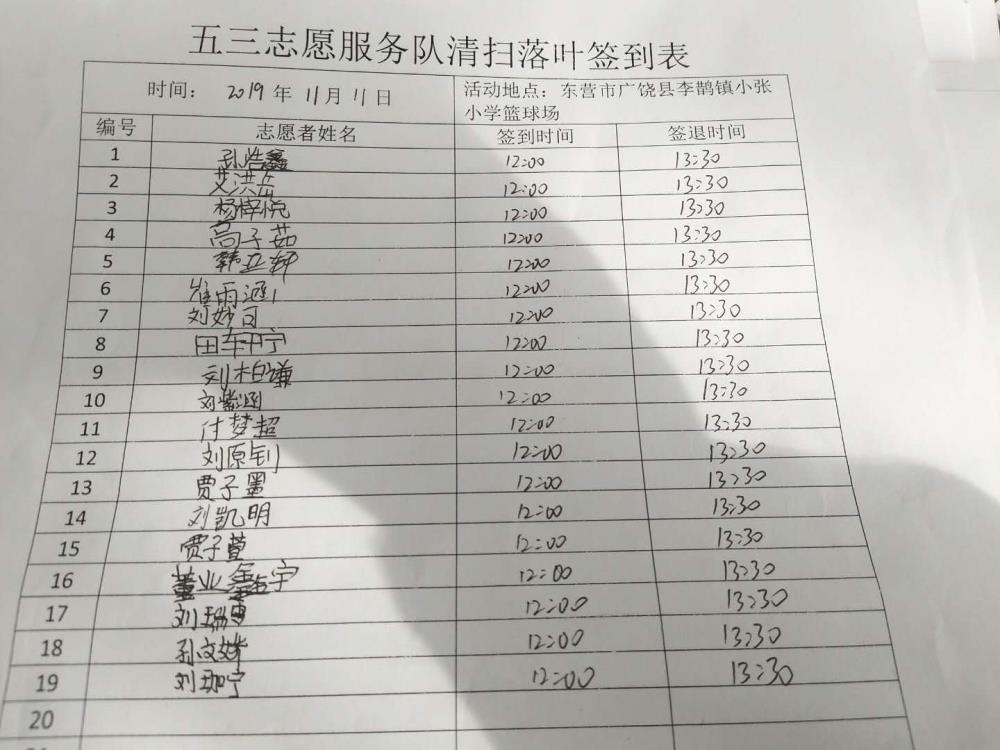 五三志愿服务队清扫落叶签到表
时间： 2019年 11月 11日 活动地点：东营市广饶县李鹊镇小张
小学篮球场
编号 志愿者姓名 签到时间 签退时间
1 孙浩鑫 12:00 13:30
2 艾洪岳 12:00 13:30
3 杨梓悦 12:00 13:30
4 高子茹 12:00 13:30
5 韩立轩 12:00 13:30
6 崔雨涵 12:00 13:30
7 刘妙可 12:00 13:30
8 田 12:00 13:30
9 刘柏谦 12:00 13:30
10 刘紫涵 12:00 13:30
11 付梦超 12:00 13:30
12 刘原钊 12:00 13:30
13 贾子墨 12:00 13:30
14 刘凯明 12:00 13:30
15 贾子萱 12:00 13:30
16 董业 宇 12:00 13:30
17 刘瑞 12:00 13:30
18 孙文 12:00 13:30
19 刘珈宁 12:00 13:30
20